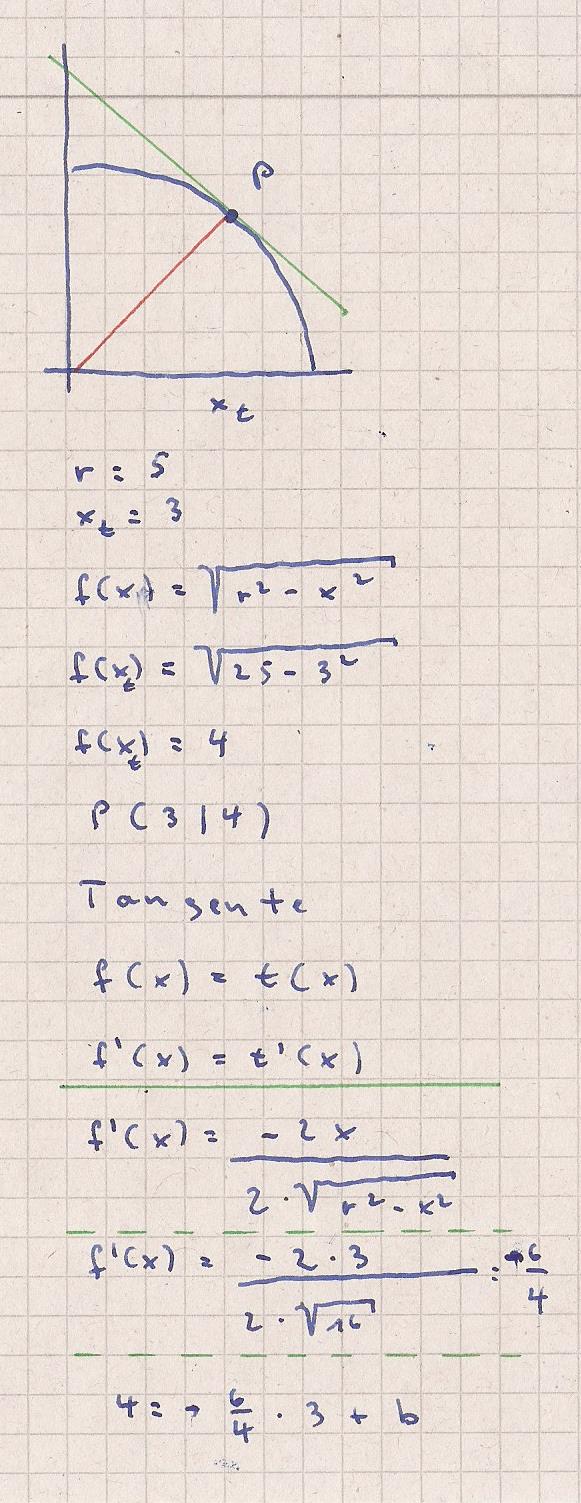 P
x_t
r = 5
x_t = 3
f(x) = √(r² - x²)
f(x_t) = √(25 - 3²)
f(x_t) = 4
P (3|4)
Tangente
f(x) = t(x)
f'(x) = t'(x)
f'(x) = (-2x)/(2·√(r² - x²))
f'(x) = (-2·3)/(2·√16) = -6/4
4 = - 6/4 · 3 + b